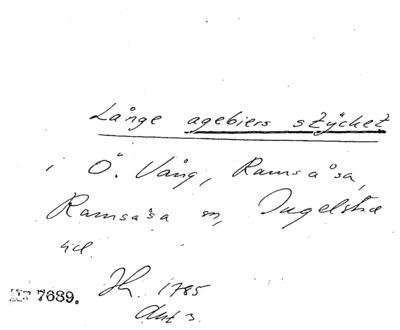 Långe agebiers stycket
i Ö. Vång, Ramsåsa,
Ramsåsa sn, Ingelstad
hd.
7689. 1785
Akt 3.